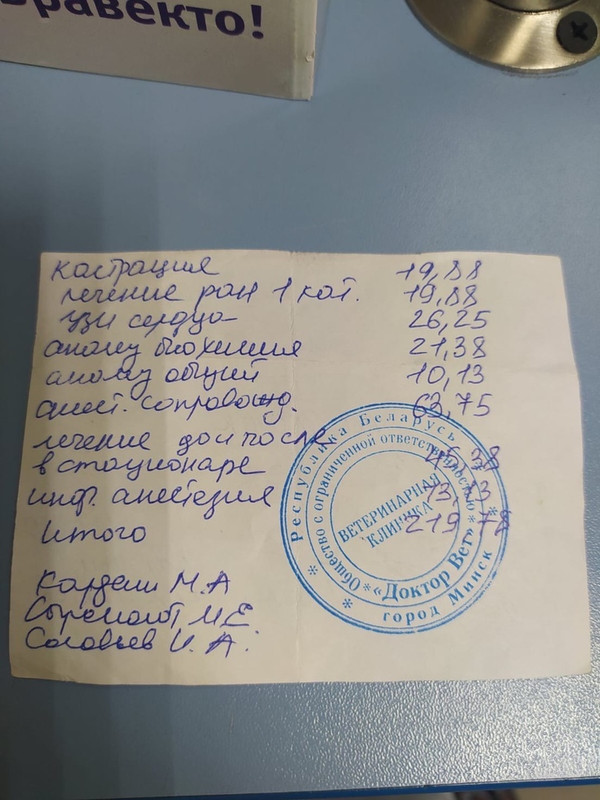 бравекто!
кастрация 19,88
лечение ран 1 кат. 19,88
узи сердца 26,25
анализ биохимия 21,38
анализ общий 10,13
анест. сопровожд. 63,75
лечение до и после
в стационаре 45,38
инф. анестезия 13,13
Итого 219,78
М.А
М.Е
Соловьев И.А.
Республика Беларусь
Общество с ограниченной ответственностью
ВЕТЕРИНАРНАЯ
КЛИНИКА
«Доктор Вет»
город Минск